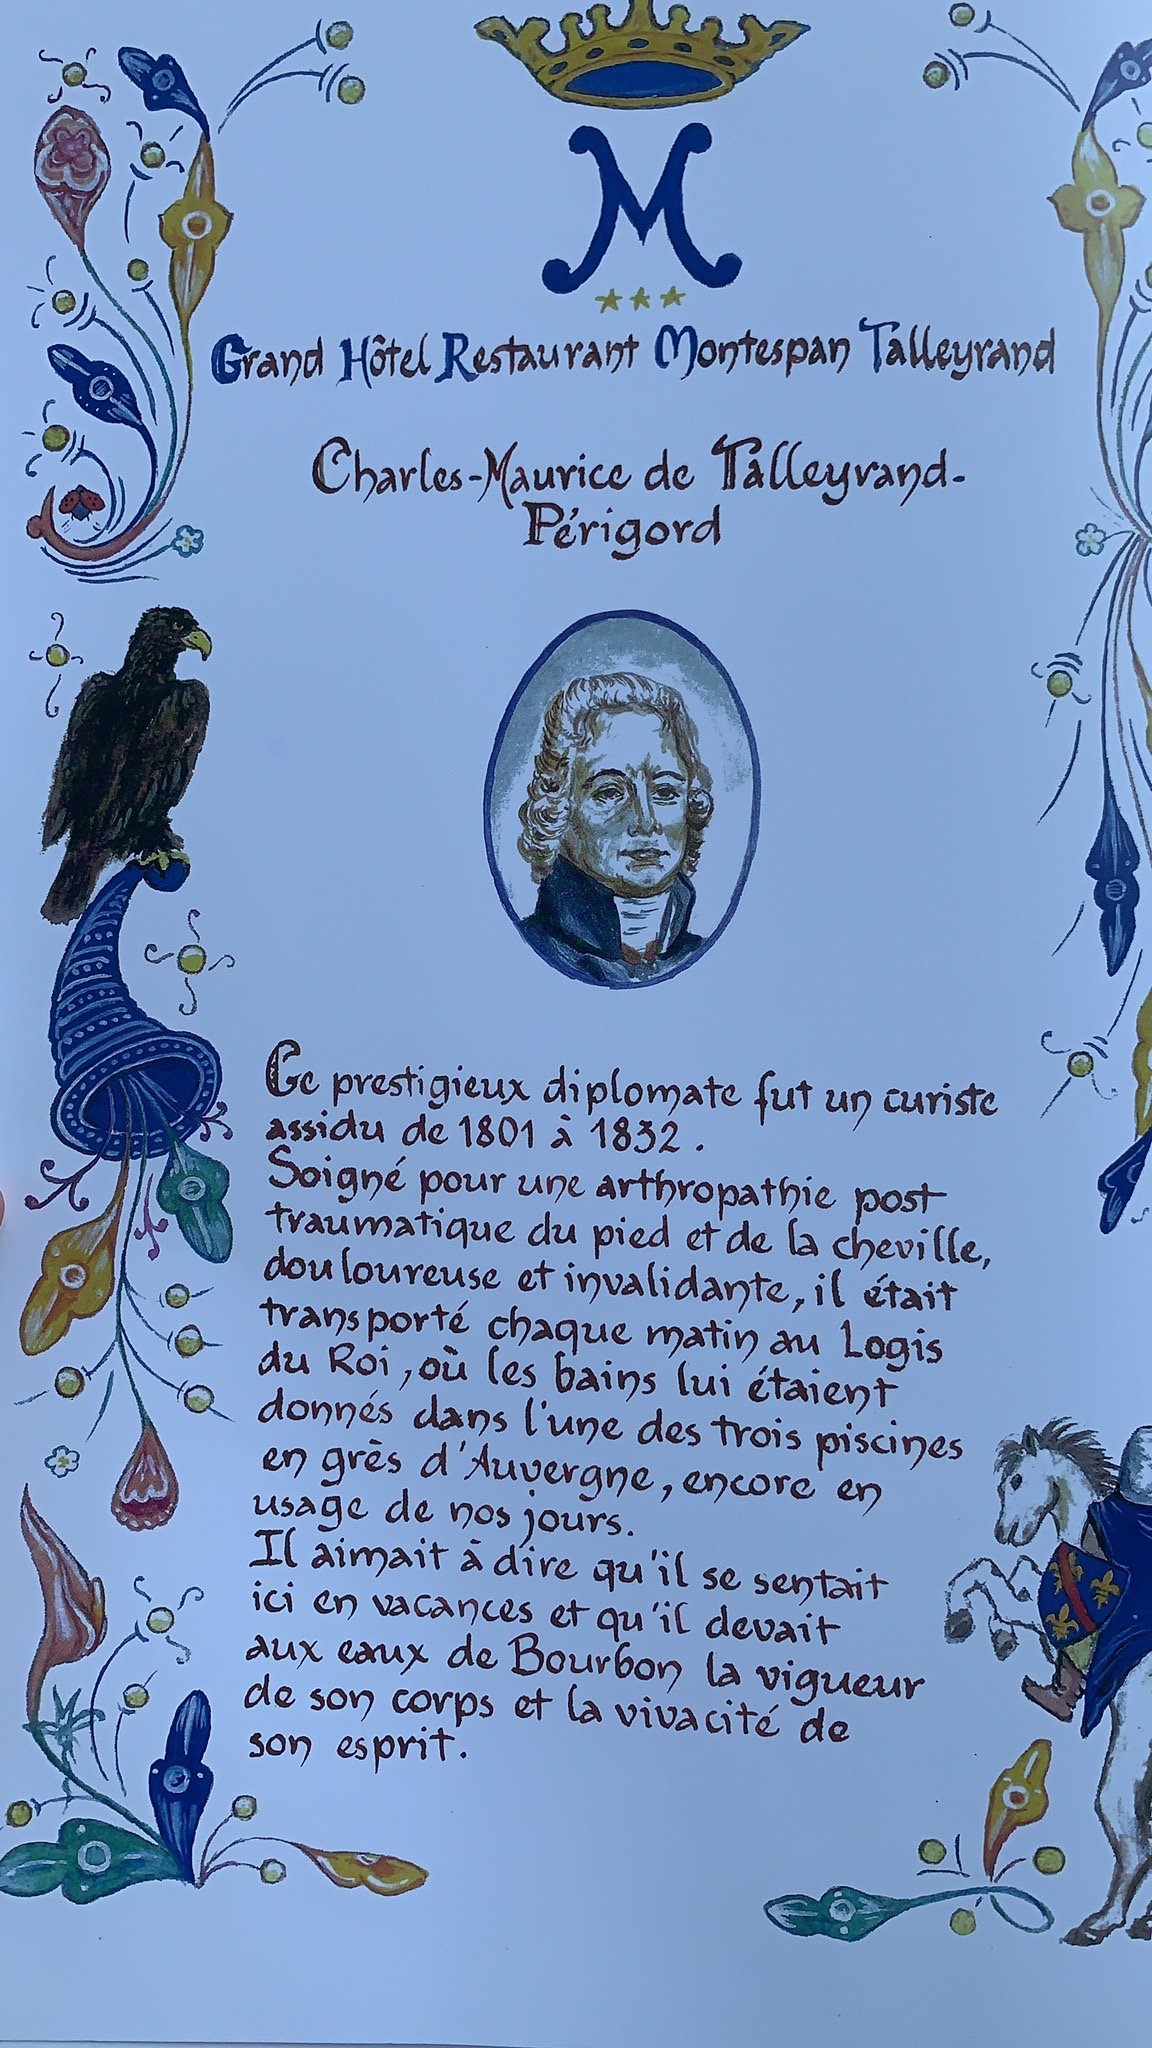 M
Grand Hôtel Restaurant Montespan Talleyrand
Charles-Maurice de Talleyrand-
Périgord
Ce prestigieux diplomate fut un curiste
assidu de 1801 à 1832.
Soigné pour une arthropathie post
traumatique du pied et de la cheville,
douloureuse et invalidante, il était
transporté chaque matin au Logis
du Roi, où les bains lui étaient
donnés dans l'une des trois piscines
en grès d'Auvergne, encore en
usage de nos jours.
Il aimait à dire qu'il se sentait
ici en vacances et qu'il devait
aux eaux de Bourbon la vigueur
de son corps et la vivacité de
son esprit.